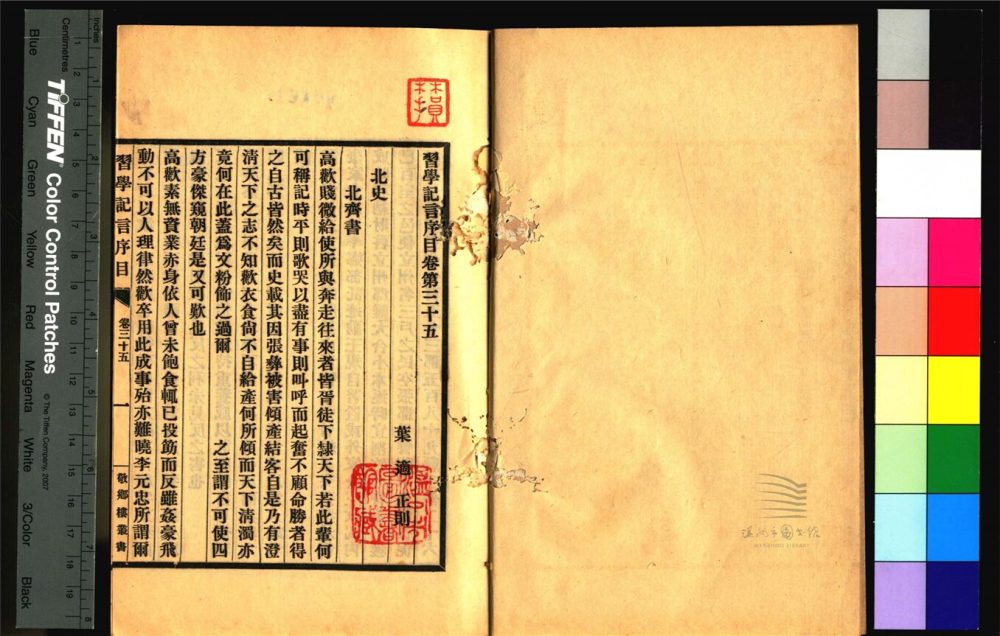 習學記言序目卷第三十五
葉適正則
北史
北齊書
高歡賤微給使所與奔走往來者皆胥徒下隸天下若此輩何
可稱記時平則歌哭以盡有事則叫呼而起奮不顧命勝者得
之自古皆然矣而史載其因張彝被害傾產結客自是乃有澄
淸天下之志不知歡衣食尙不自給產何所傾而天下淸濁亦
竟何在此蓋爲文粉飾之過爾
之至謂不可使四
方豪傑窺朝廷是又可歎也
高歡素無資業赤身依人曾未飽食輒已投筯而反雖姦豪飛
動不可以人理律然歡卒用此成事殆亦難曉李元忠所謂爾
習學記言序目
卷三十五
一
敬鄉樓叢書
Inches
Centimetres
TIFFEN Color Control Patches
© The Tiffen Company, 2007
Blue
Cyan
Green
Yellow
Red
Magenta
White
3/Color
Black
1
2
3
4
5
6
7
8
9
10
11
12
13
14
15
16
17
18
19
溫州市圖書館
WENZHOU LIBRARY